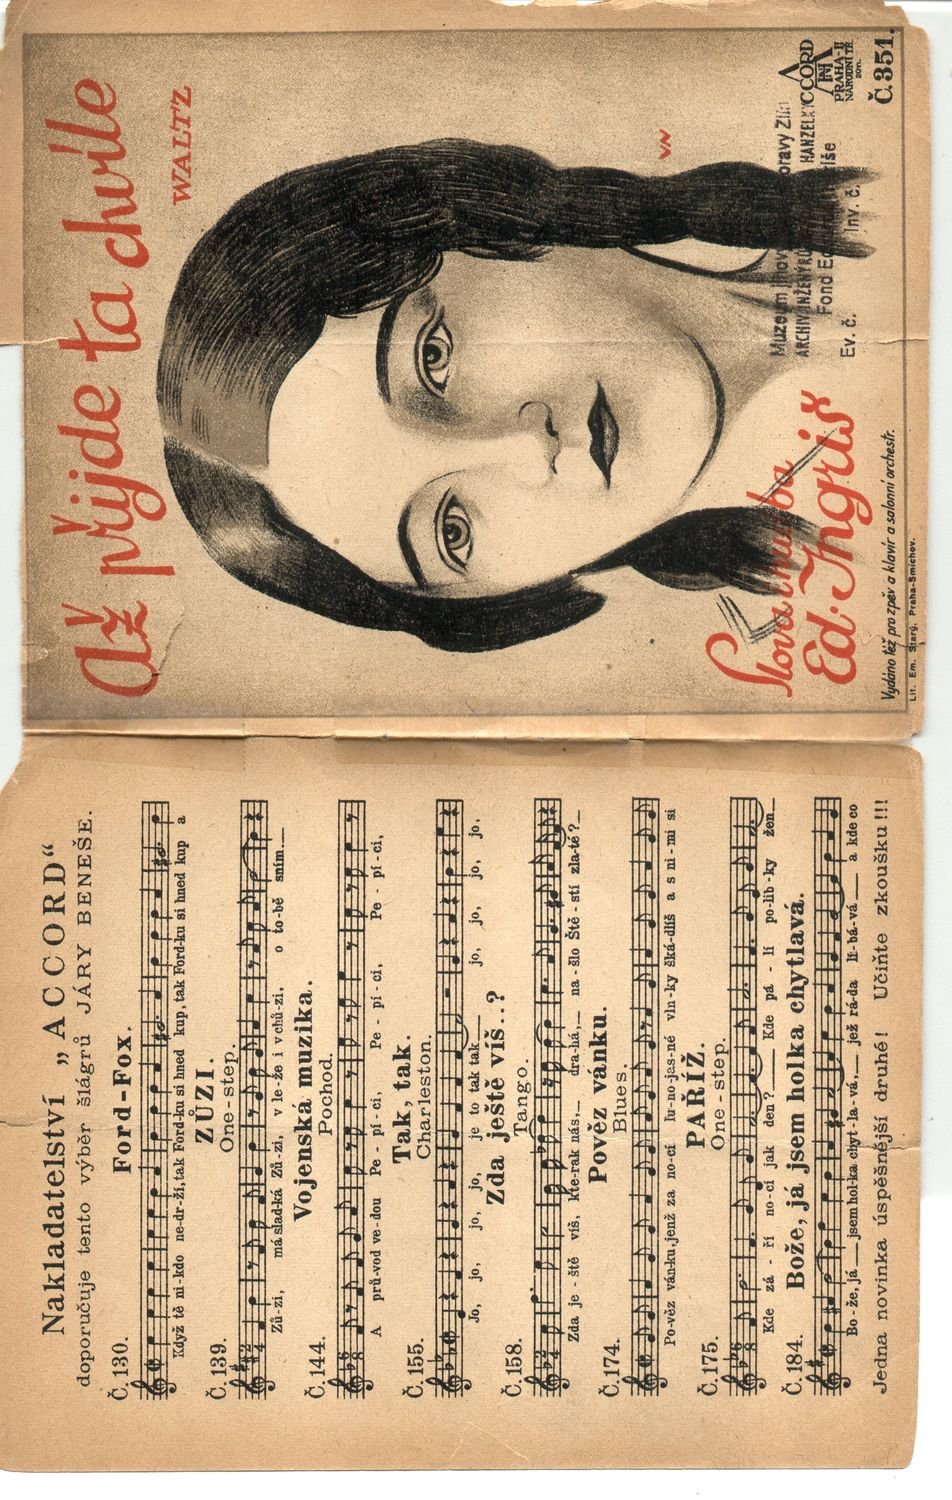 Až přijde ta chvíle
WALTZ
VN
Slova hudba
Ed. Ingriš
Vydáno též pro zpěv a klavír a salonní orchestr.
Lit. Em. Starý, Praha-Smíchov.
Muzeum
ARCHIV INŽENÝRŮ HANZELKY
Fond
Ev. č. Inv. č.
ACCORD
PRAHA-II
NÁRODNÍ TŘ.
Č.351.
Nakladatelství „ACCORD“
doporučuje tento výběr šlágrů JÁRY BENEŠE.
Č.130. Ford-Fox.
Když tě ni-kdo ne-dr-ží, tak Ford-ku si hned kup, tak Ford-ku si hned kup a
Č.139. ZŮZI.
One-step.
Zů-zi, má slad-ká Zů-zi, v le-že i v chů-zi, o to-bě sním.
Č.144. Vojenská muzika.
Pochod.
A prů-vod ve-dou Pe-pí-ci, Pe-pí-ci, Pe-pí-ci,
Č.155. Tak, tak.
Charleston.
Jo, jo, jo, jo, je to tak tak jo, jo, jo, jo,
Č.158. Zda ještě víš..?
Tango.
Zda je-ště víš, kte-rak nás, dra-há, na-šlo Ště-stí zla-té?
Č.174. Pověz vánku.
Blues.
Po-věz ván-ku, jenž za no-cí lu-no-jas-né vln-ky šká-dlíš a s ni-mi si
Č.175. PAŘÍŽ.
One-step.
Kde zá-ří no-cí jak den? Kde pá-lí po-lib-ky žen
Č.184. Bože, já jsem holka chytlavá.
Bo-že, já jsem hol-ka chyt-la-vá, jež rá-da lí-bá-vá a kde co
Jedna novinka úspěšnější druhé! Učiňte zkoušku!!!